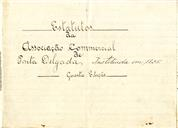 Estatutos
da
Associação Commercial
de
Ponta Delgada, Instituida em 1835
Quarta Edição